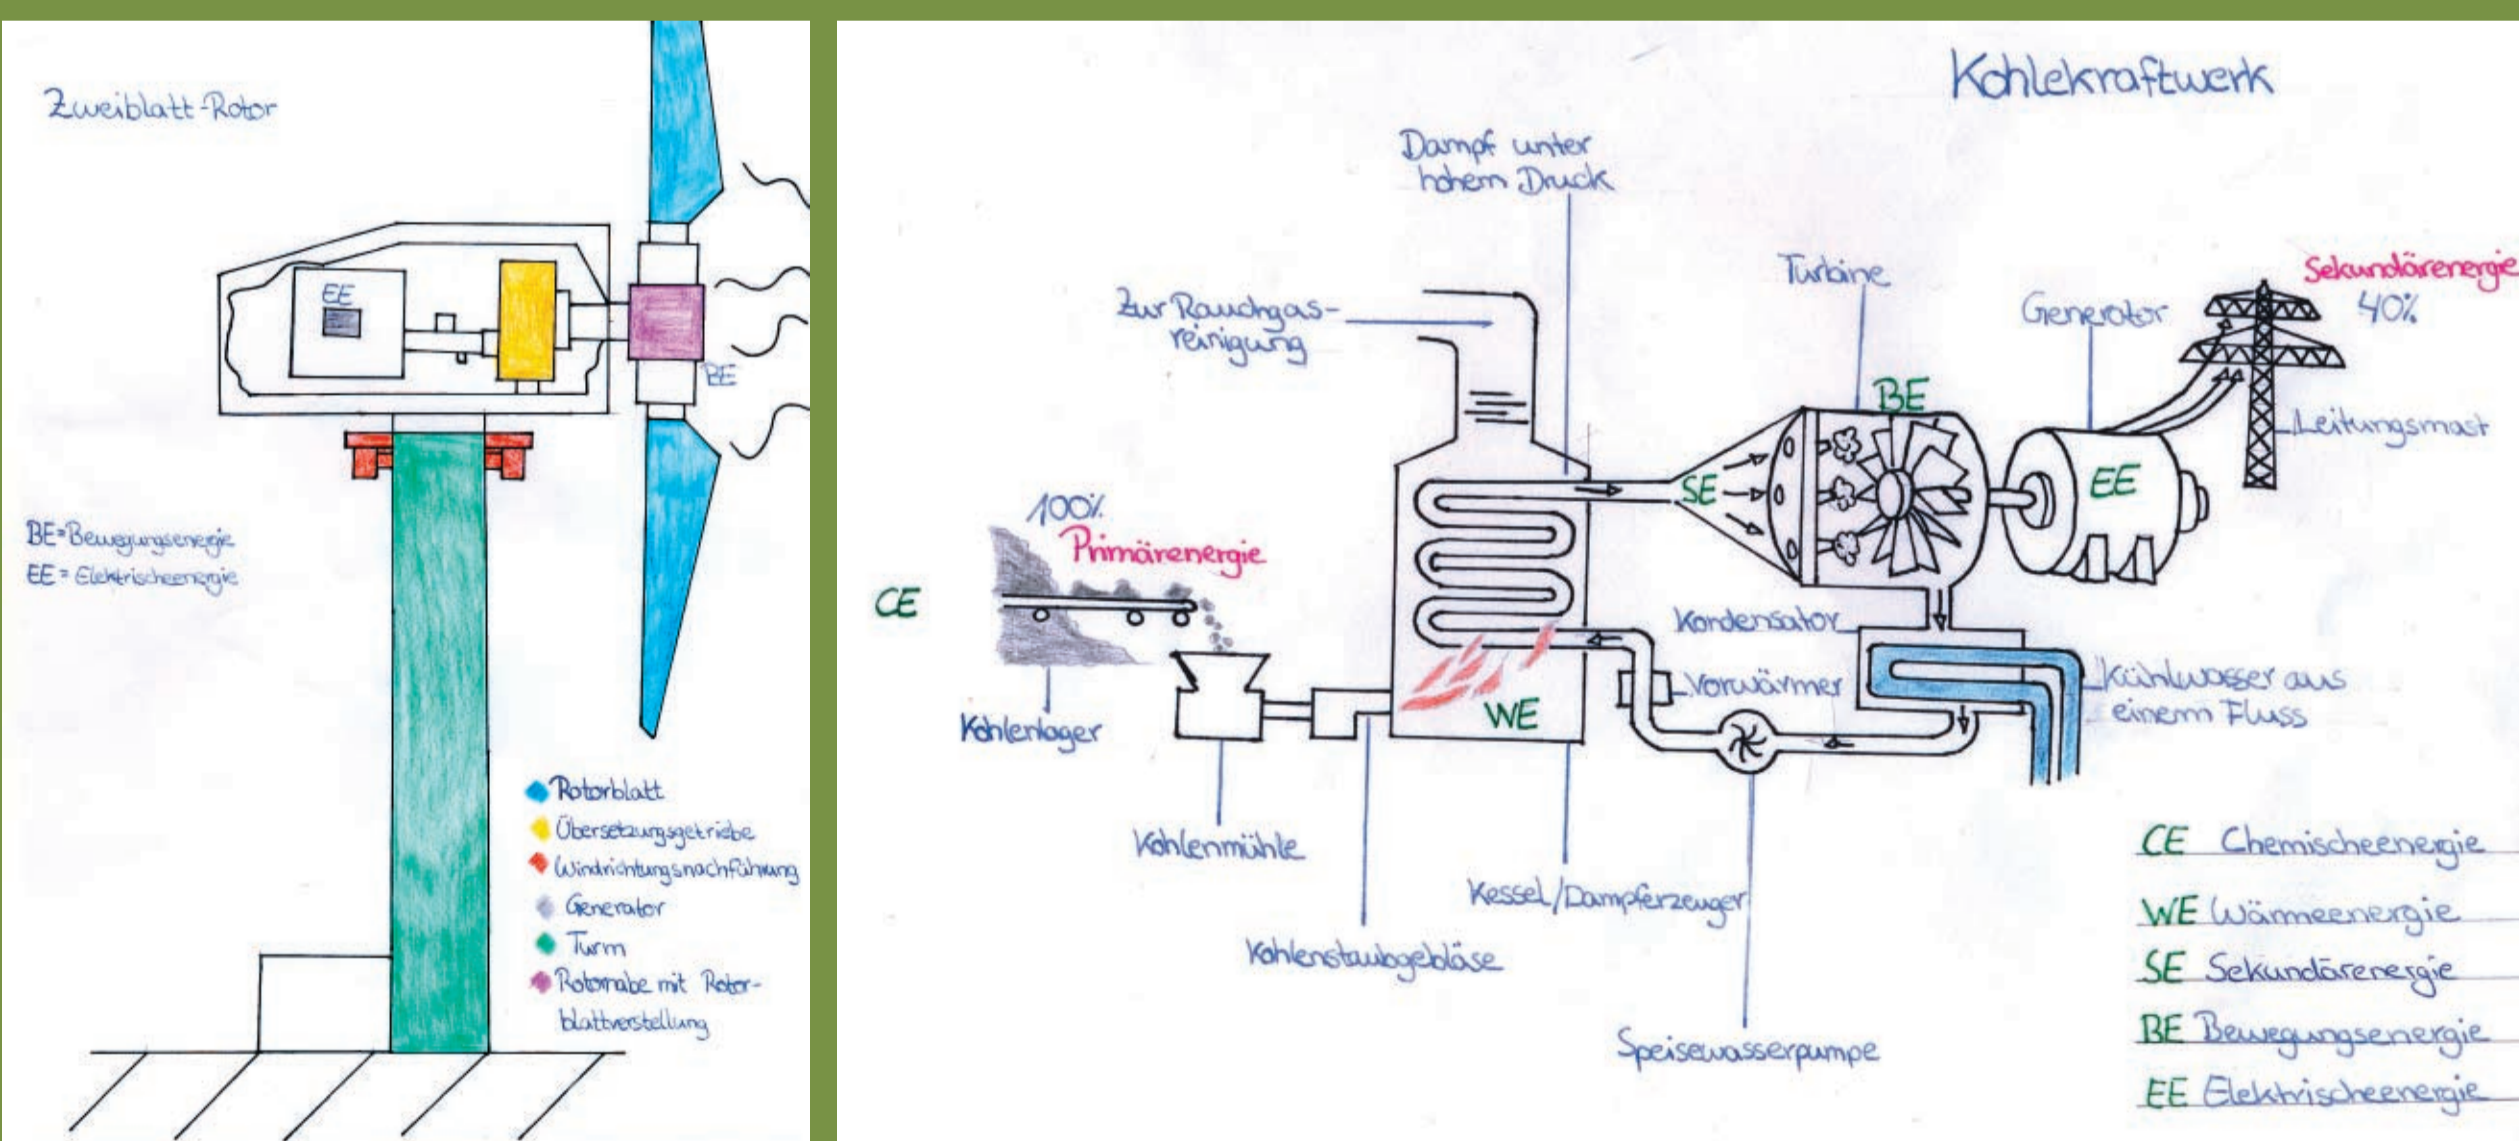 Zweiblatt-Rotor
EE
BE
BE=Bewegungsenergie
EE = Elektrischeenergie
Rotorblatt
Übersetzungsgetriebe
Windrichtungsnachführung
Generator
Turm
Rotornabe mit Rotor-
blattverstellung
Kohlekraftwerk
Dampf unter
hohem Druck
Zur Rauchgas-
reinigung
Turbine
Generator
Sekundärenergie
40%
Leitungsmast
BE
SE
EE
100%
Primärenergie
CE
Kohlenlager
Kohlenmühle
Kohlenstaubgebläse
WE
Kessel/Dampferzeuger
Kondensator
Vorwärmer
Speisewasserpumpe
Kühlwasser aus
einem Fluss
CE Chemischeenergie
WE Wärmeenergie
SE Sekundärenergie
BE Bewegungsenergie
EE Elektrischeenergie